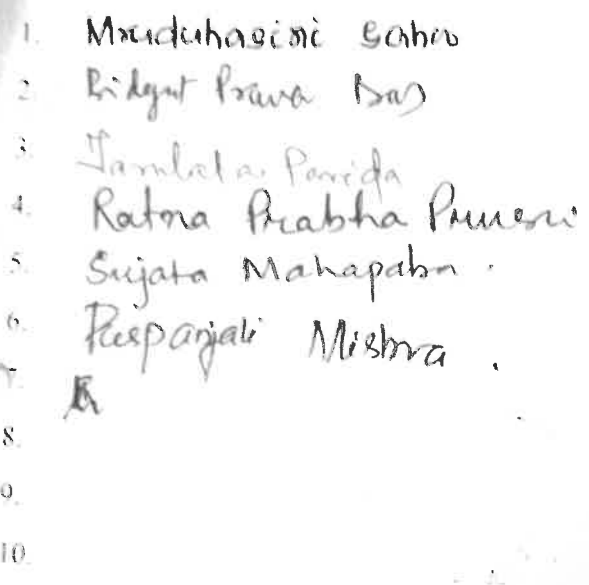 1. Mruduhasini Sahoo
2. Bidyut Prava Das
3. Parida
4. Ratna Prabha
5. Sujata Mahapatra.
6. Puspanjali Mishra.
7.
8.
9.
10.